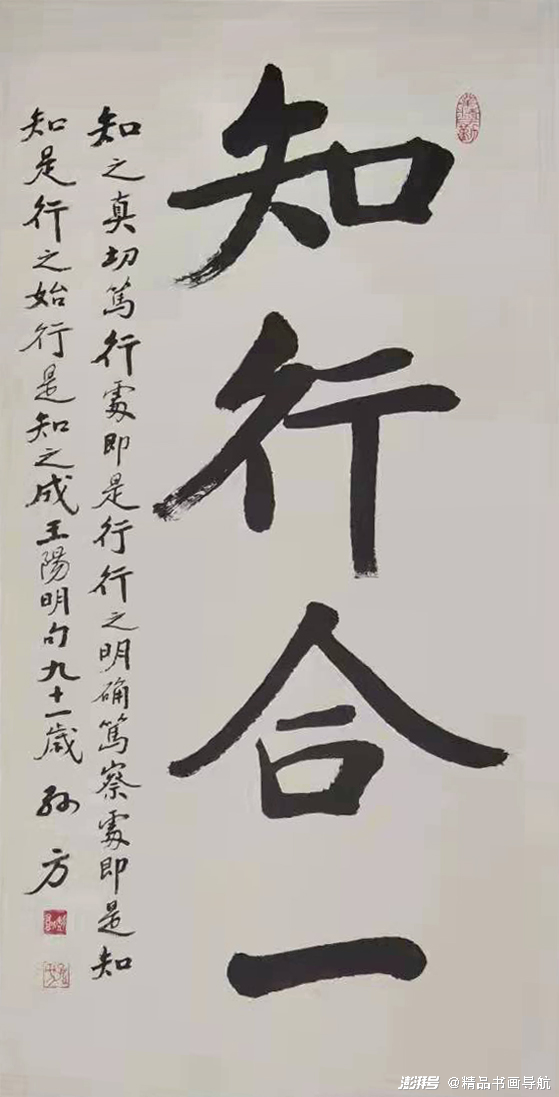 知行合一
知之真切篤行處即是行行之明确篤察處即是知
知是行之始行是知之成王陽明句九十一歲 孙方
澎湃号 @精品书画导航